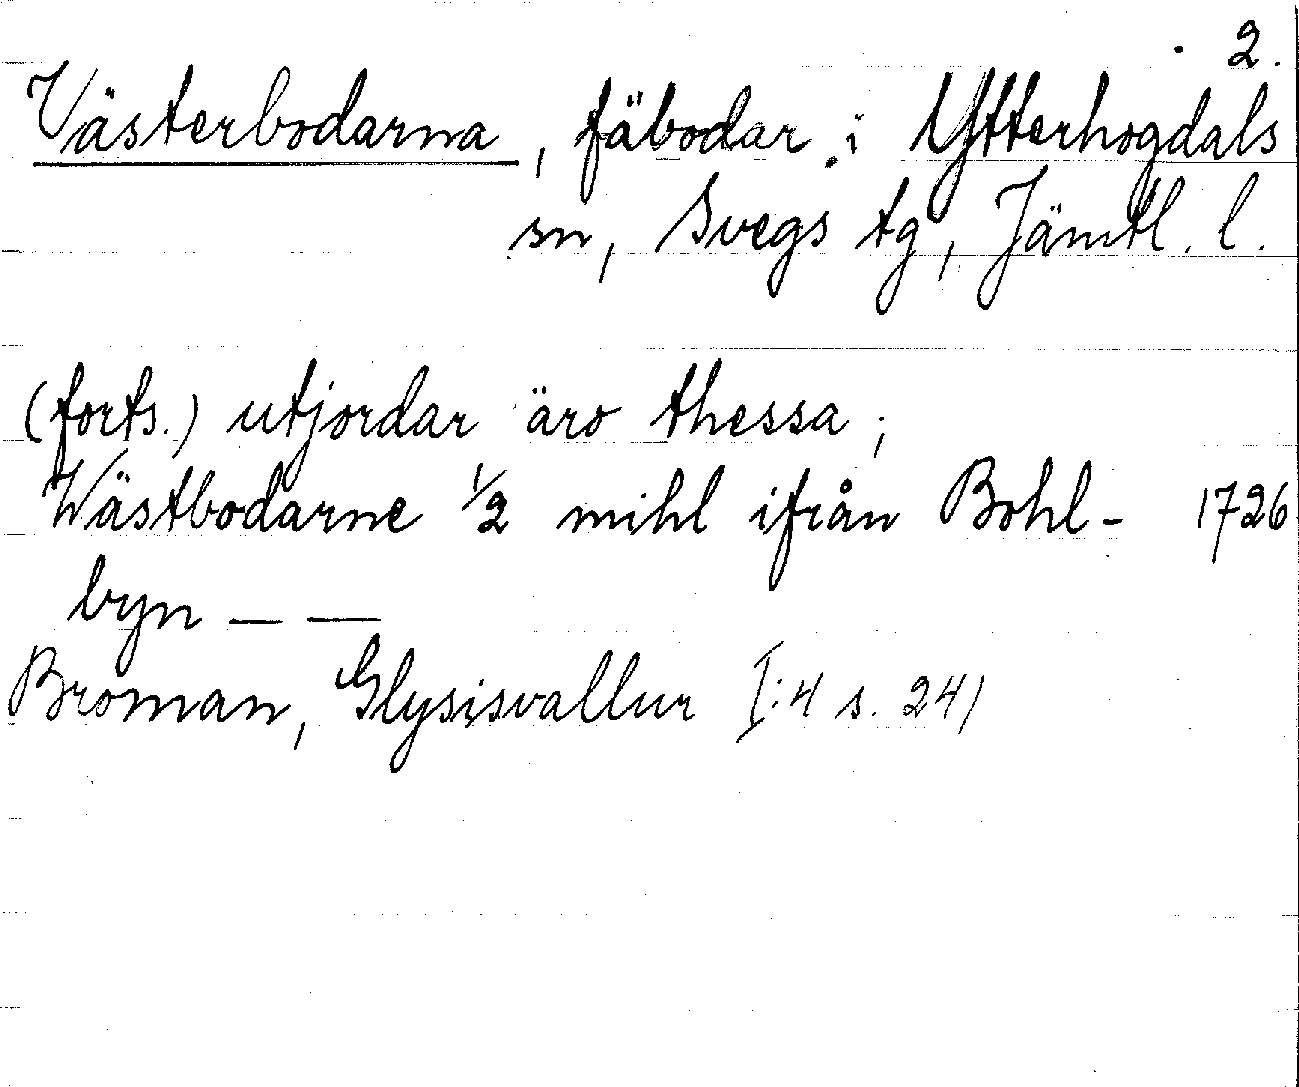 2.
Västerbodarna, fäbodar i Ytterhogdals
sn, Svegs tg, Jämtl. l.
(forts.) utjordar äro thessa;
Wästbodarne ½ mihl ifrån Bohl- 1726
byn — —
Broman, Glysisvallur I:4 s. 241